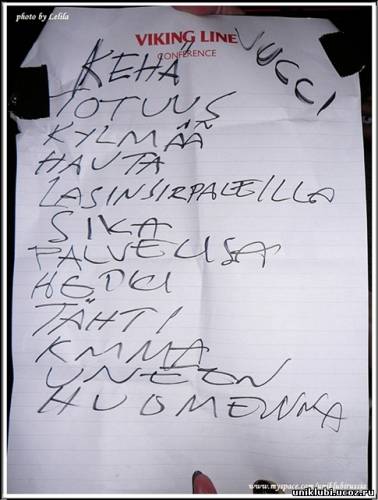 photo by Lelila
VIKING LINE
CONFERENCE
VUCCI
KEHÄ
TOTUUS
KYLMÄÄ
HAUTA
LASINSIRPALEILLA
SIKA
PALVELUSA
HETKI
TÄHTI
KMMA
UNEEN
HUOMENNA
www.myspace.com/uniklubirussia
uniklubi.ucoz.ru